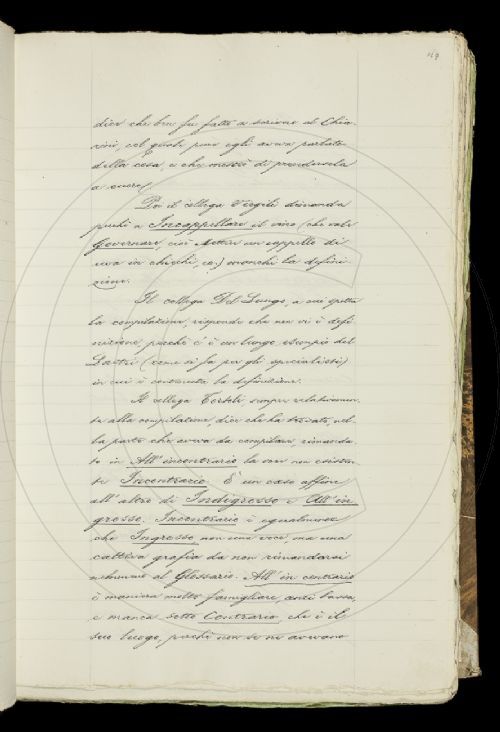 dice che ben fu fatto a scrivere al Chia-
rini, col quale pure egli aveva parlato
della cosa, e che mostrò di prendersela
a cuore.
Poi il collega Tortoli domanda
perchè a Incappellare il vino (che vale
Governare, cioè Mettere un cappello di
uva in chicchi, ec.) manchi la defini-
zione.
Il collega Del Lungo, a cui spetta
la compilazione, risponde che non vi è defi-
nizione, perchè c'è un lungo esempio del
Lastri (come si fa per gli specialisti)
in cui è contenuta la definizione.
Il collega Tortoli sempre relativamen-
te alla compilazione, dice che ha trovato, nel-
la parte che aveva da compilare, rimanda-
to in All'incontrario la voce non esisten-
te Incontrario. È un caso affine
all'altro di Indigrosso e All'in
grosso. Incontrario è egualmente
che Ingrosso non una voce, ma una
cattiva grafia da non rimandarsi
nemmeno al Glossario. All'in contrario
è maniera molto famigliare, anzi bassa,
e manca sotto Contrario, che è il
suo luogo, perchè non se ne avevano